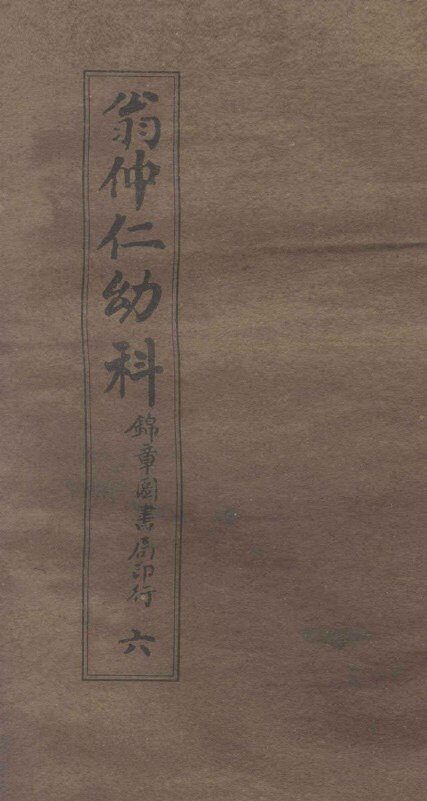 翁仲仁幼科
錦章圖書局印行
六